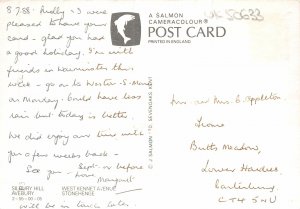 8.7.88. Molly - I were
pleased to have your
card - glad you had
a good holiday. I'm with
friends in Warminster this
week - go on to Weston-S-Mare
on Monday. Could have less
rain but today is better.
We did enjoy our time with
you a few weeks back -
See you - Sept. or before
Love Margaret
SILBURY HILL
AVEBURY
2-56-00-05
WEST KENNET AVENUE
STONEHENGE
Will be in touch later.
A SALMON
CAMERACOLOUR®
POST CARD
PRINTED IN ENGLAND
© J SALMON LTD SEVENOAKS KENT
Mr. and Mrs. E. Appleton
Frome
Butts Meadow,
Lower Hardres
Canterbury
CT4 5NU